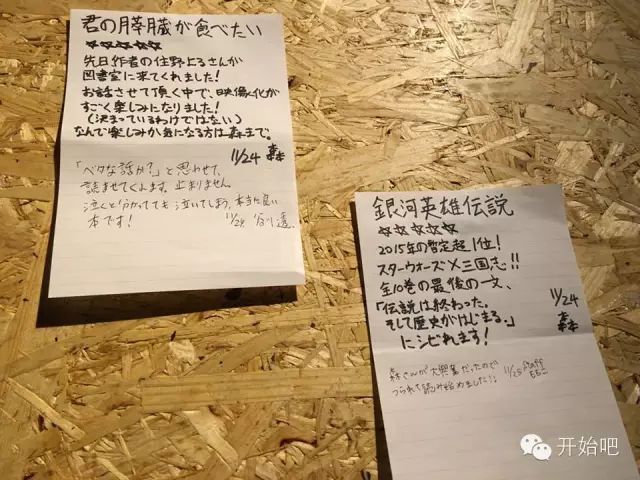 君の膵臓が食べたい
☆☆☆☆☆
先日作者の住野よるさんが
図書室に来てくれました!
お話させて頂く中で、映像化が
すごく楽しみになりました!
(決まっているわけではない)
なんで楽しみか気になる方は森まで。
11/24 森
「ベタな話か?」と思わせて、
読ませてくれます。止まりません
泣くと分かってても泣いてしまう、本当に良い
本です!
11/24
銀河英雄伝説
☆☆☆☆☆
2015年の暫定超1位!
スターウォーズ×三国志!!
全10巻の最後の一文、
「伝説は終わった。
そして歴史がはじまる。」
にシビれます!
11/24
森
森さんが大興奮だったので
つられて読み始めました!!
11/25 Staff
开始吧